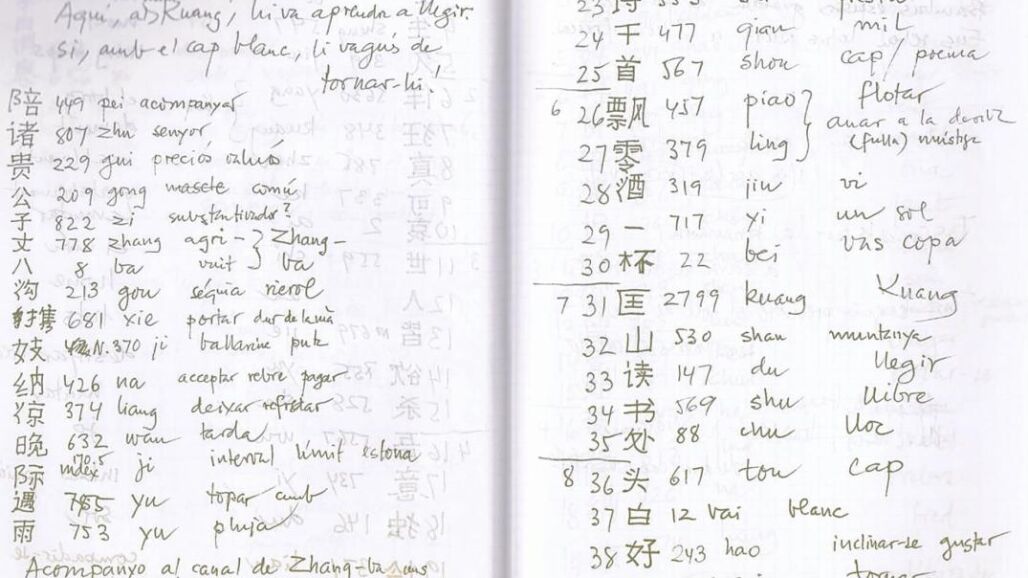 Aquí, a Kuang, li va aprendre a llegir.
Si, amb el cap blanc, li vagués de
tornar-hi!
陪 449 pei acompanyar
诸 807 zhu senyor
贵 229 gui preciós valuós
公 209 gong mascle comú
子 822 zi substantivador?
丈 778 zhang agri- } Zhang-
八 8 ba vuit } ba
沟 213 gou séquia rierol
携 681 xie portar dur de la mà
妓 N.370 ji ballarina puta
纳 426 na acceptar rebre pagar
凉 374 liang deixar refredar
晚 632 wan tarda
际 índex 170.5 ji interval límit estona
遇 755 yu topar amb
雨 753 yu pluja
Acompanyo al canal de Zhang-ba uns
23
24 千 477 qian mil
25 首 567 shou cap/poema
6 26 飘 457 piao } flotar
anar a la deriva
27 零 379 ling } (fulla) mústiga
28 酒 319 jiu vi
29 一 717 yi un sol
30 杯 22 bei vas copa
7 31 匡 2799 kuang Kuang
32 山 530 shan muntanya
33 读 147 du llegir
34 书 569 shu llibre
35 处 88 chu lloc
8 36 头 617 tou cap
37 白 12 bai blanc
38 好 243 hao inclinar-se gustar